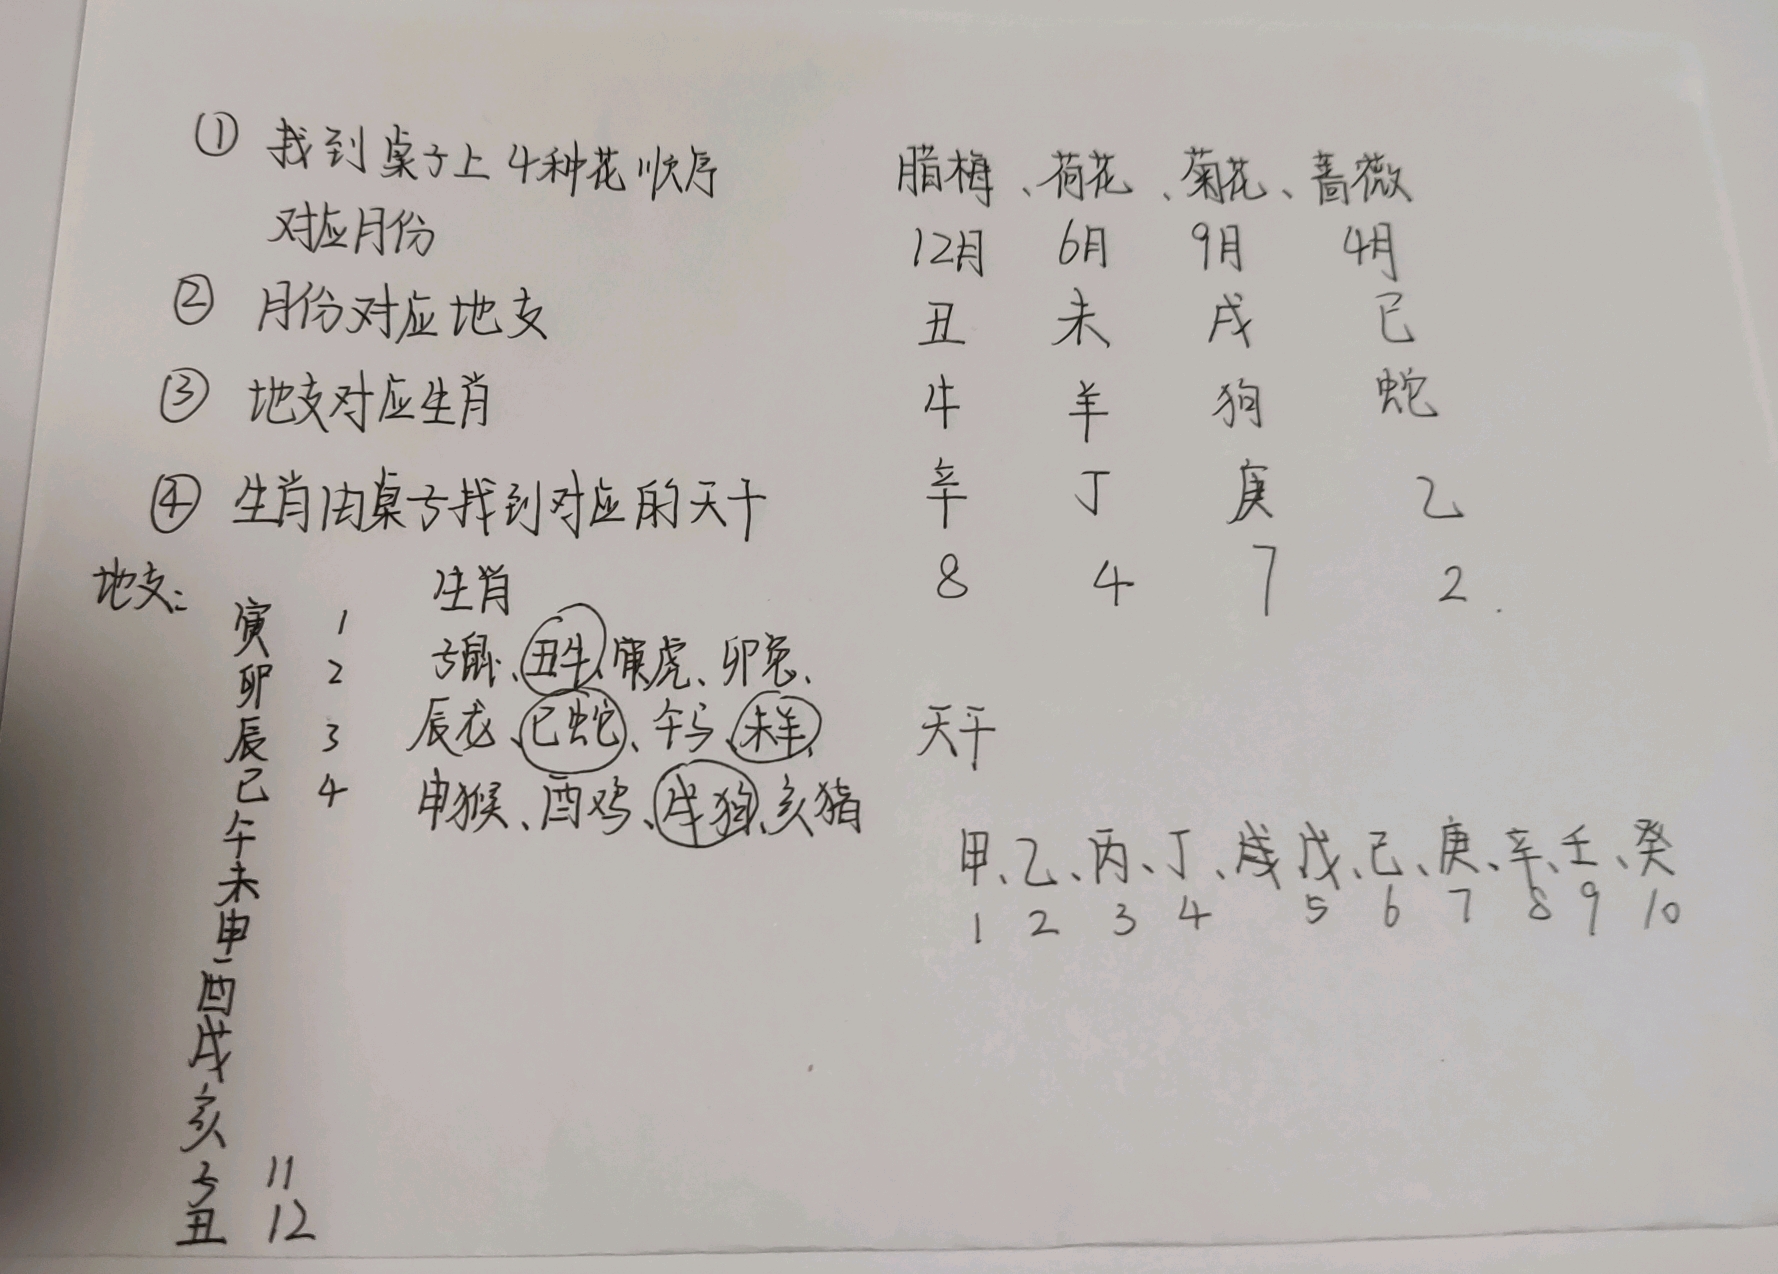 ① 找到桌子上4种花顺序
对应月份
② 月份对应地支
③ 地支对应生肖
④ 生肖由桌子找到对应的天干
腊梅、荷花、菊花、蔷薇
12月 6月 9月 4月
丑 未 戌 巳
牛 羊 狗 蛇
辛 丁 庚 乙
8 4 7 2
地支:
寅 1
卯 2
辰 3
巳 4
午
未
申
酉
戌
亥
子 11
丑 12
生肖
子鼠、丑牛、寅虎、卯兔、
辰龙、巳蛇、午马、未羊、
申猴、酉鸡、戌狗、亥猪
天干
甲、乙、丙、丁、戊、己、庚、辛、壬、癸
1 2 3 4 5 6 7 8 9 10